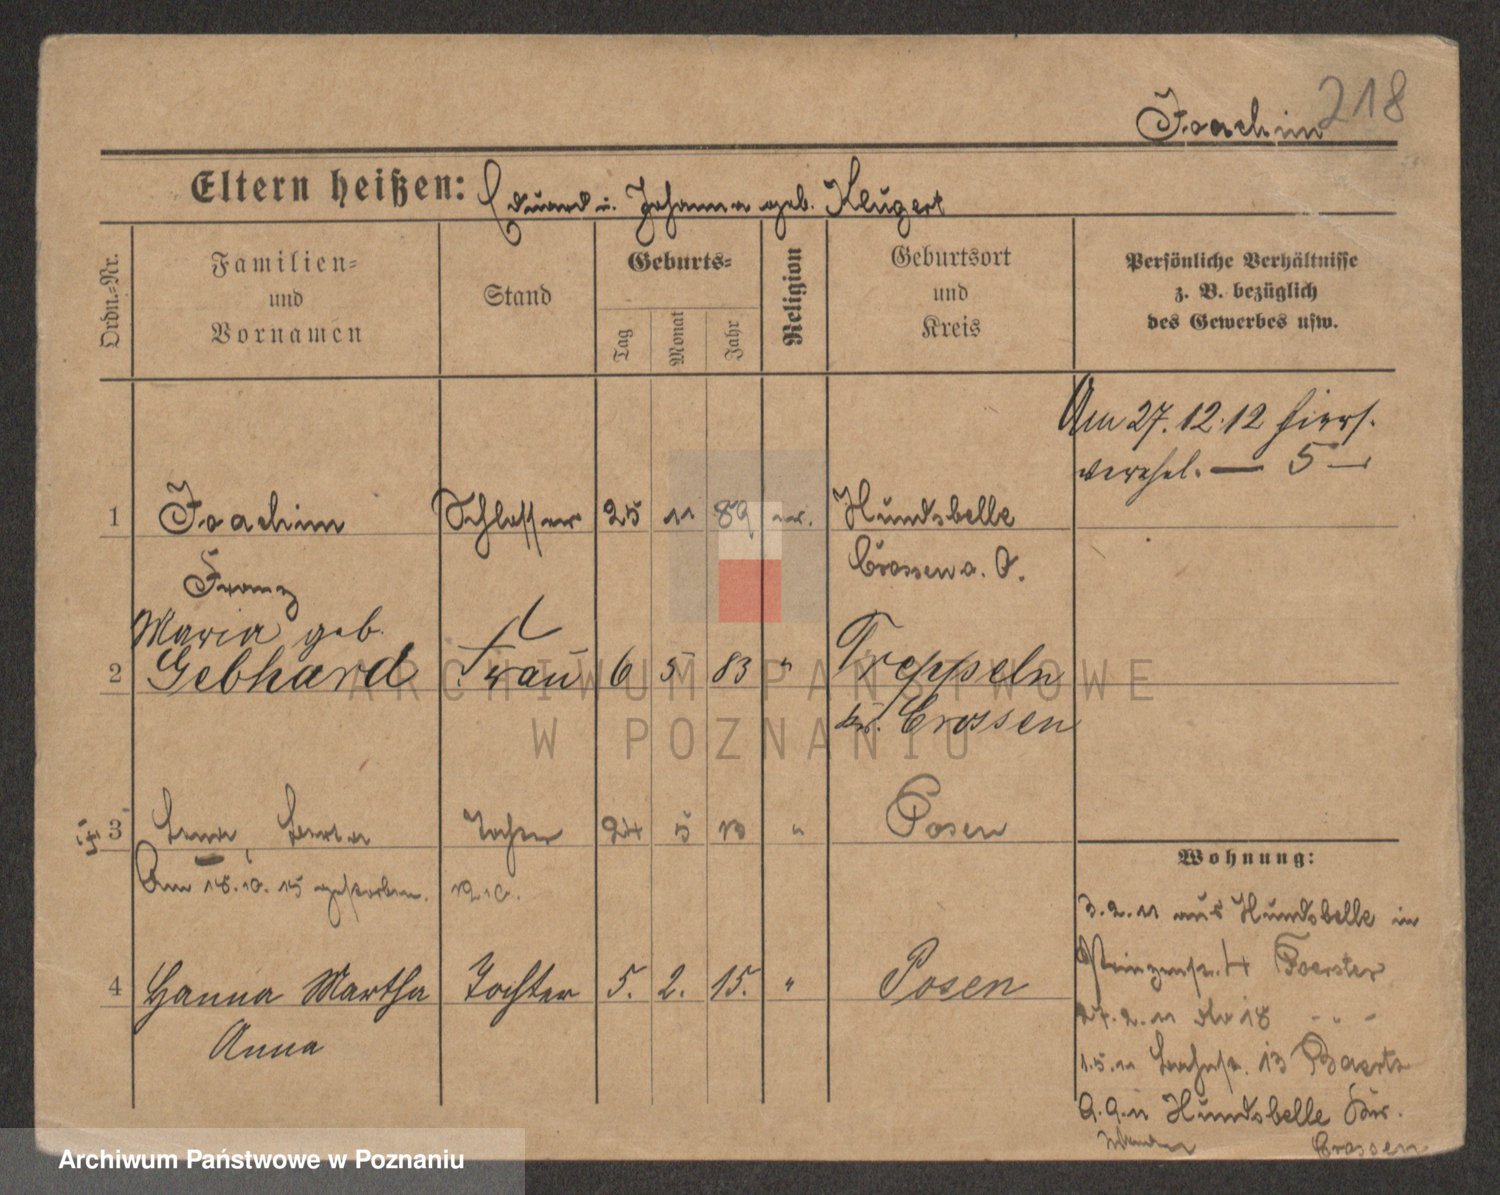 218
Joachim
Eltern heißen: Eduard u. Johanna geb. Klugert
Ordn.-Nr.
Familien-
und
Vornamen
Stand
Geburts-
Tag
Monat
Jahr
Religion
Geburtsort
und
Kreis
Persönliche Verhältnisse
z. B. bezüglich
des Gewerbes usw.
Am 27.12.12 hiers.
verehel. — 5 —
1 Joachim Schlosser 25 11 89 ev. Hundsbelle
Franz Crossen a. O.
Maria geb.
2 Gebhard Frau 6 5 83 " Treppeln
Kr. Crossen
3 Tochter 24 5 13 " Posen
Am 18.10.15 gestorben.
4 Hanna Martha Tochter 5. 2. 15. " Posen
Anna
Wohnung:
3.2.11 aus Hundsbelle in
4 Foerster
27.2.11 18 - " -
1.5.11 13 Baerts
9.9.11 Hundsbelle Kr.
Crossen
ARCHIWUM PAŃSTWOWE
W POZNANIU
Archiwum Państwowe w Poznaniu